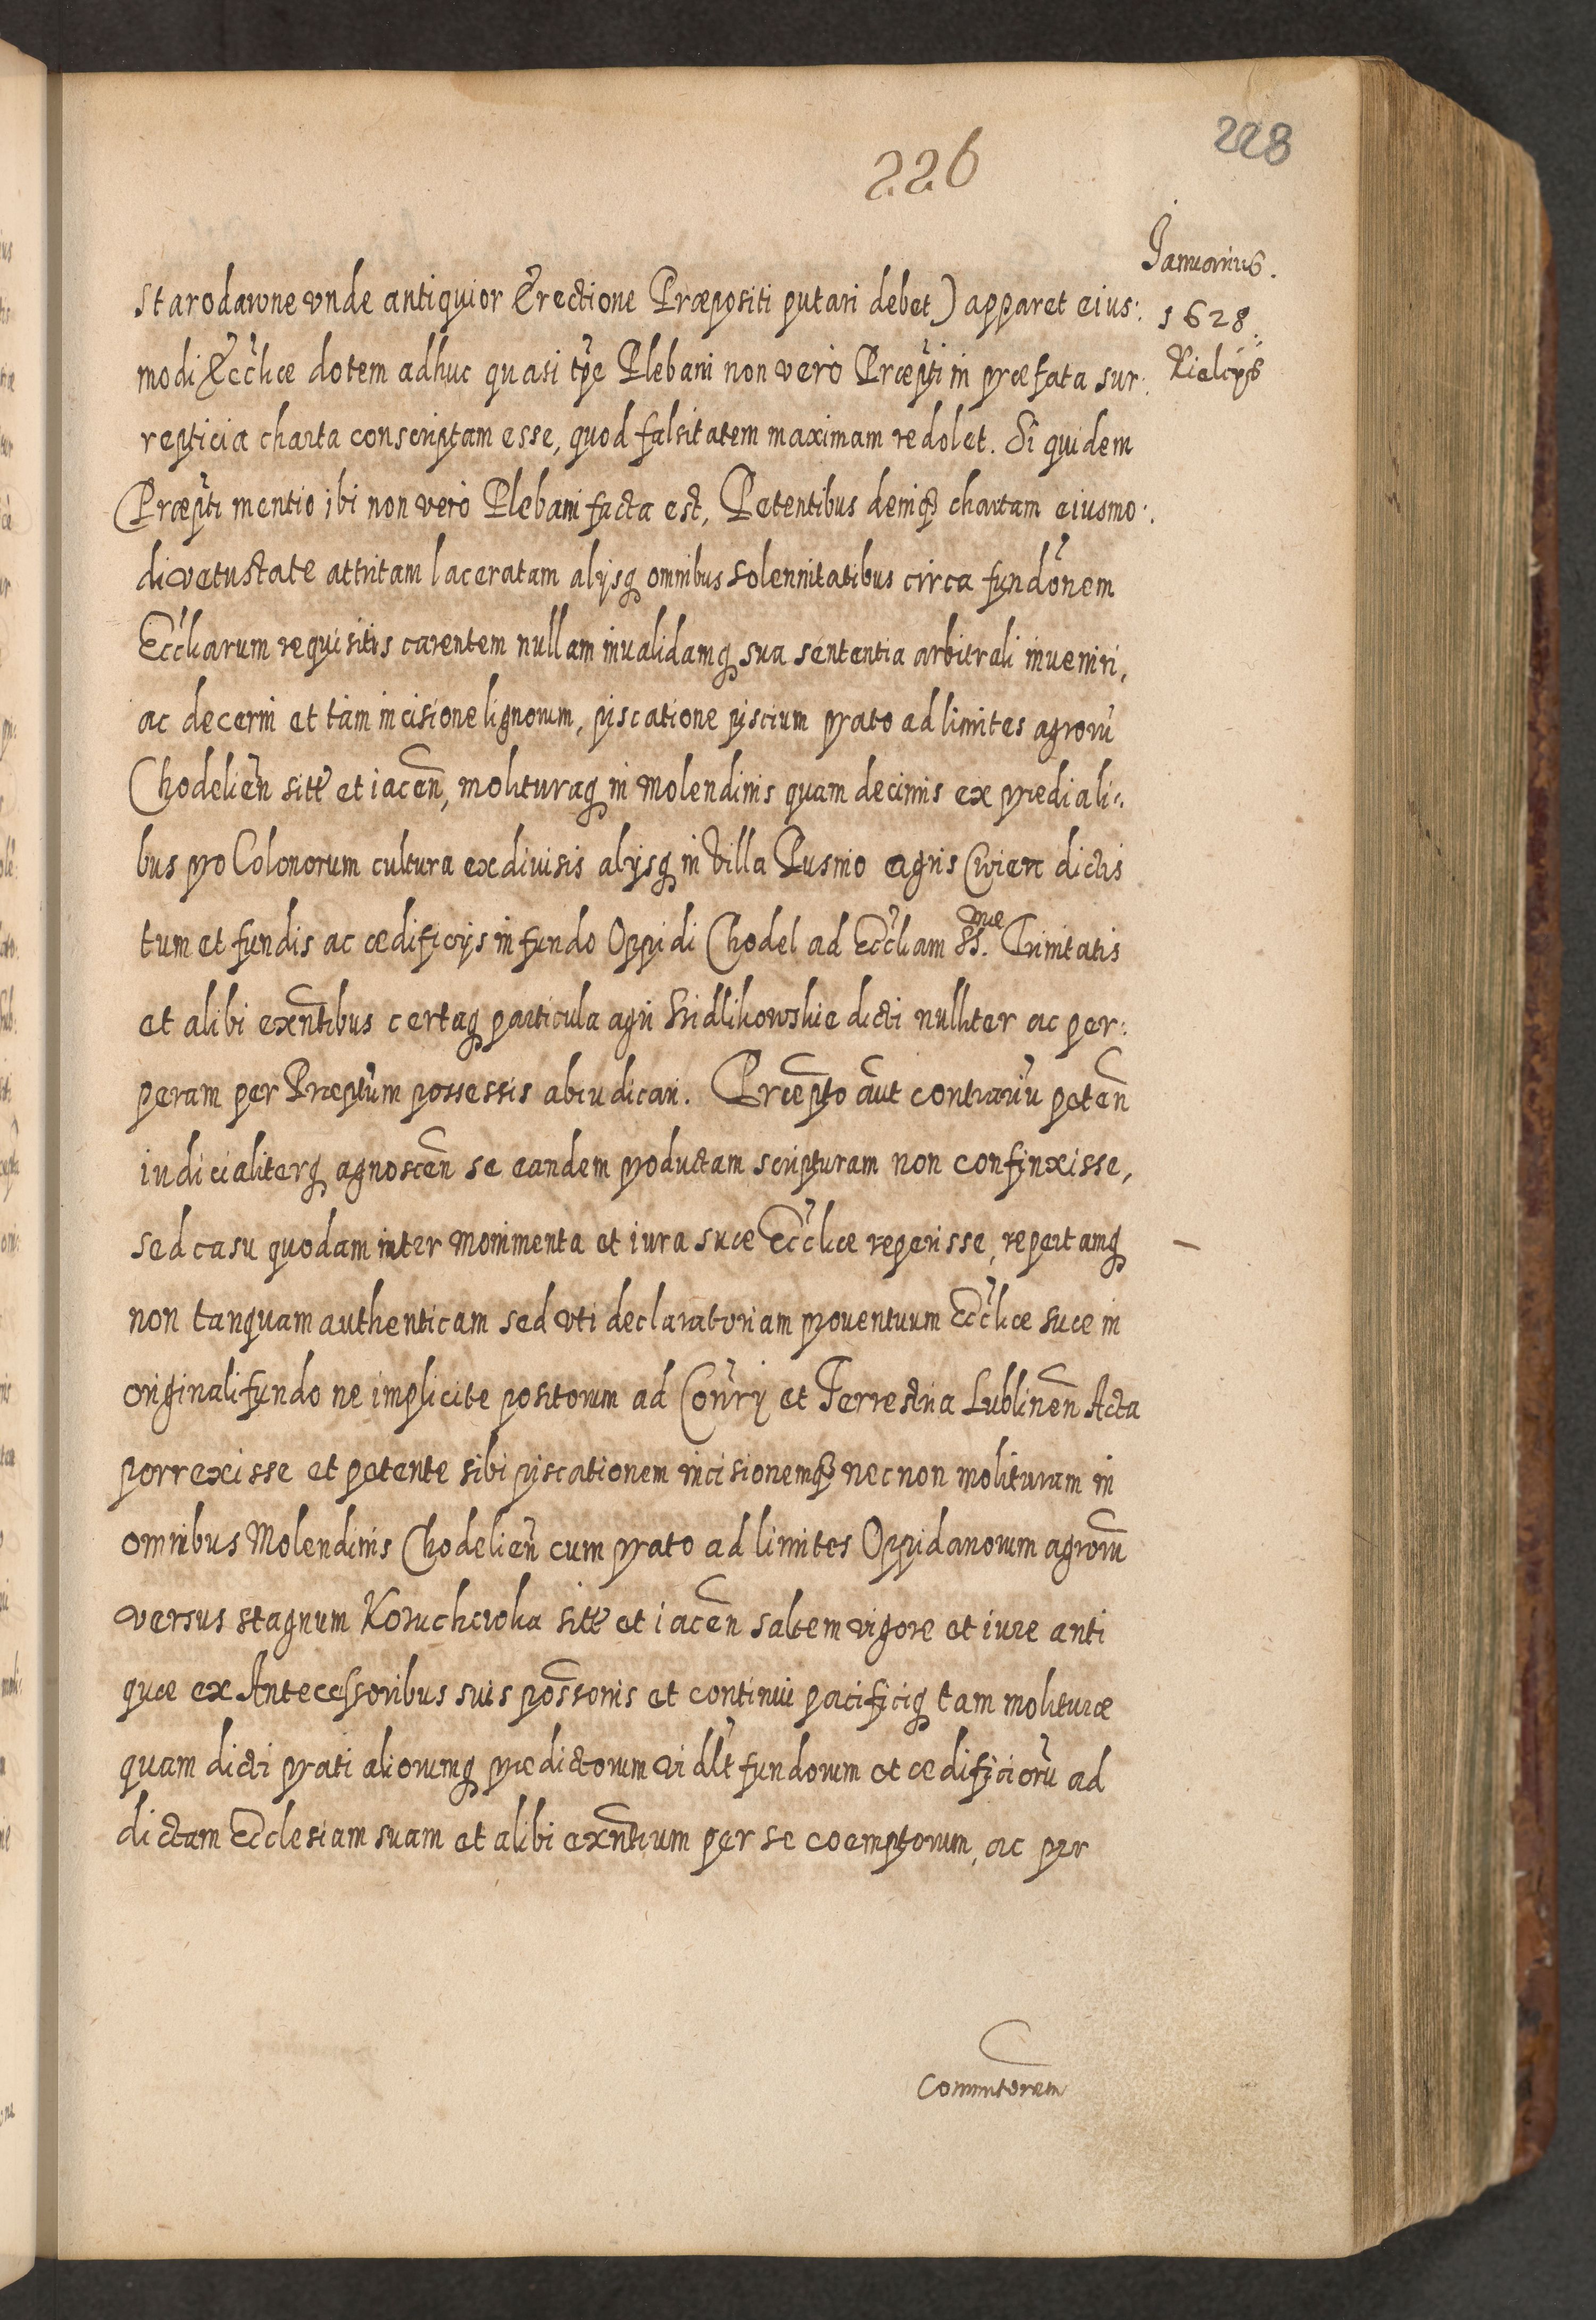 228
226
Januarius.
1628.
Kielcijs
starodawne vnde antiquior Erectione Præpositi putari debet) apparet eius:
modi Eccl̃iæ dotem adhuc quasi tp̃e Plebani non verò Præp̃ti in præfata sur:
repticia charta conscriptam esse, quod falsitatem maximam redolet. Si quidem
Præp̃ti mentio ibi non verò Plebani facta est, Petentibus demq3 chartam eiusmo:
di vetustate attritam laceratam alijsq3 omnibus solennitatibus circa fundõnem
Eccl̃iarum requisitis carentem nullam inualidamq3 sua sententia arbitrali inueniri,
ac decerni et tàm incisione lignorum, piscatione piscium prato ad limites agrorũ
Chodelien̄ sitt̃ et iacen̄, molituraq3 in Molendinis quam decimis ex prediali:
bus pro Colonorum cultura ex diuisis alijsq3 in villa Pusmo agris Cwierc dictis
tum et fundis ac ædificijs in fundo Oppidi Chodel ad Eccl̃iam SS.mæ Trinitatis
et alibi exñtibus certaq3 particula agri Sridlikowskie dicti nulliter ac per:
peram per Præp̃tum possessis abiudicari. Præp̃to aũt contrariũ peten̄
iudicialiterq3 agnoscen̄ se eandem productam scripturam non confinxisse,
sed casu quodam inter monimenta et iura suæ Eccl̃iæ reperisse, repertamq3
non tanquam authenticam sed vti declaratoriam prouentuum Eccl̃iæ suæ in
originali fundo ne implicite positorum ad Con̄rij et Terrestria Lublinen̄ Acta
porrexisse et petente sibi piscationem incisionemq3 necnon molituram in
omnibus Molendinis Chodelien̄ cum prato ad limites Oppidanorum agrorũ
versus stagnum sitt̃ et iacen̄ saltem vigore et iure anti
quæ ex Antecessoribus suis possõnis et continui pacificiq3 tam molituræ
quam dicti prati aliorumq3 prædictorum vidlt̃ fundorum et ædificiorũ ad
dictam Ecclesiam suam et alibi exñtium per se coemptorum, ac per
Comm̃torem